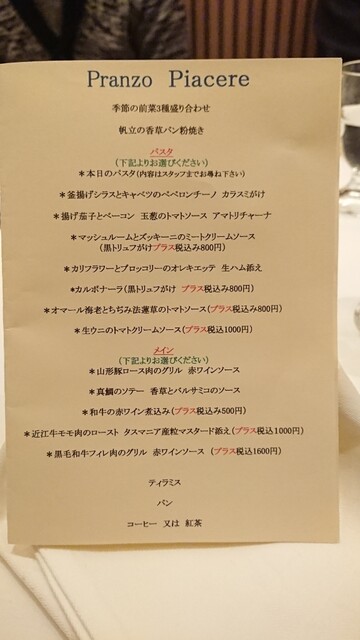 Pranzo Piacere
季節の前菜3種盛り合わせ
帆立の香草パン粉焼き
パスタ
(下記よりお選びください)
*本日のパスタ(内容はスタッフまでお尋ね下さい)
*釜揚げシラスとキャベツのペペロンチーノ カラスミがけ
*揚げ茄子とベーコン 玉葱のトマトソース アマトリチャーナ
*マッシュルームとズッキーニのミートクリームソース
(黒トリュフがけプラス税込み800円)
*カリフラワーとブロッコリーのオレキエッテ 生ハム添え
*カルボナーラ(黒トリュフがけ プラス税込み800円)
*オマール海老とちぢみ法蓮草のトマトソース(プラス税込み800円)
*生ウニのトマトクリームソース(プラス税込1000円)
メイン
(下記よりお選びください)
*山形豚ロース肉のグリル 赤ワインソース
*真鯛のソテー 香草とバルサミコのソース
*和牛の赤ワイン煮込み(プラス税込み500円)
*近江牛モモ肉のロースト タスマニア産粒マスタード添え(プラス税込1000円)
*黒毛和牛フィレ肉のグリル 赤ワインソース (プラス税込1600円)
ティラミス
パン
コーヒー 又は 紅茶